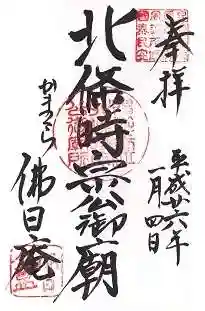 奉拝
平成廿六年
一月四日
北條時宗公御廟
かまくら
佛日庵